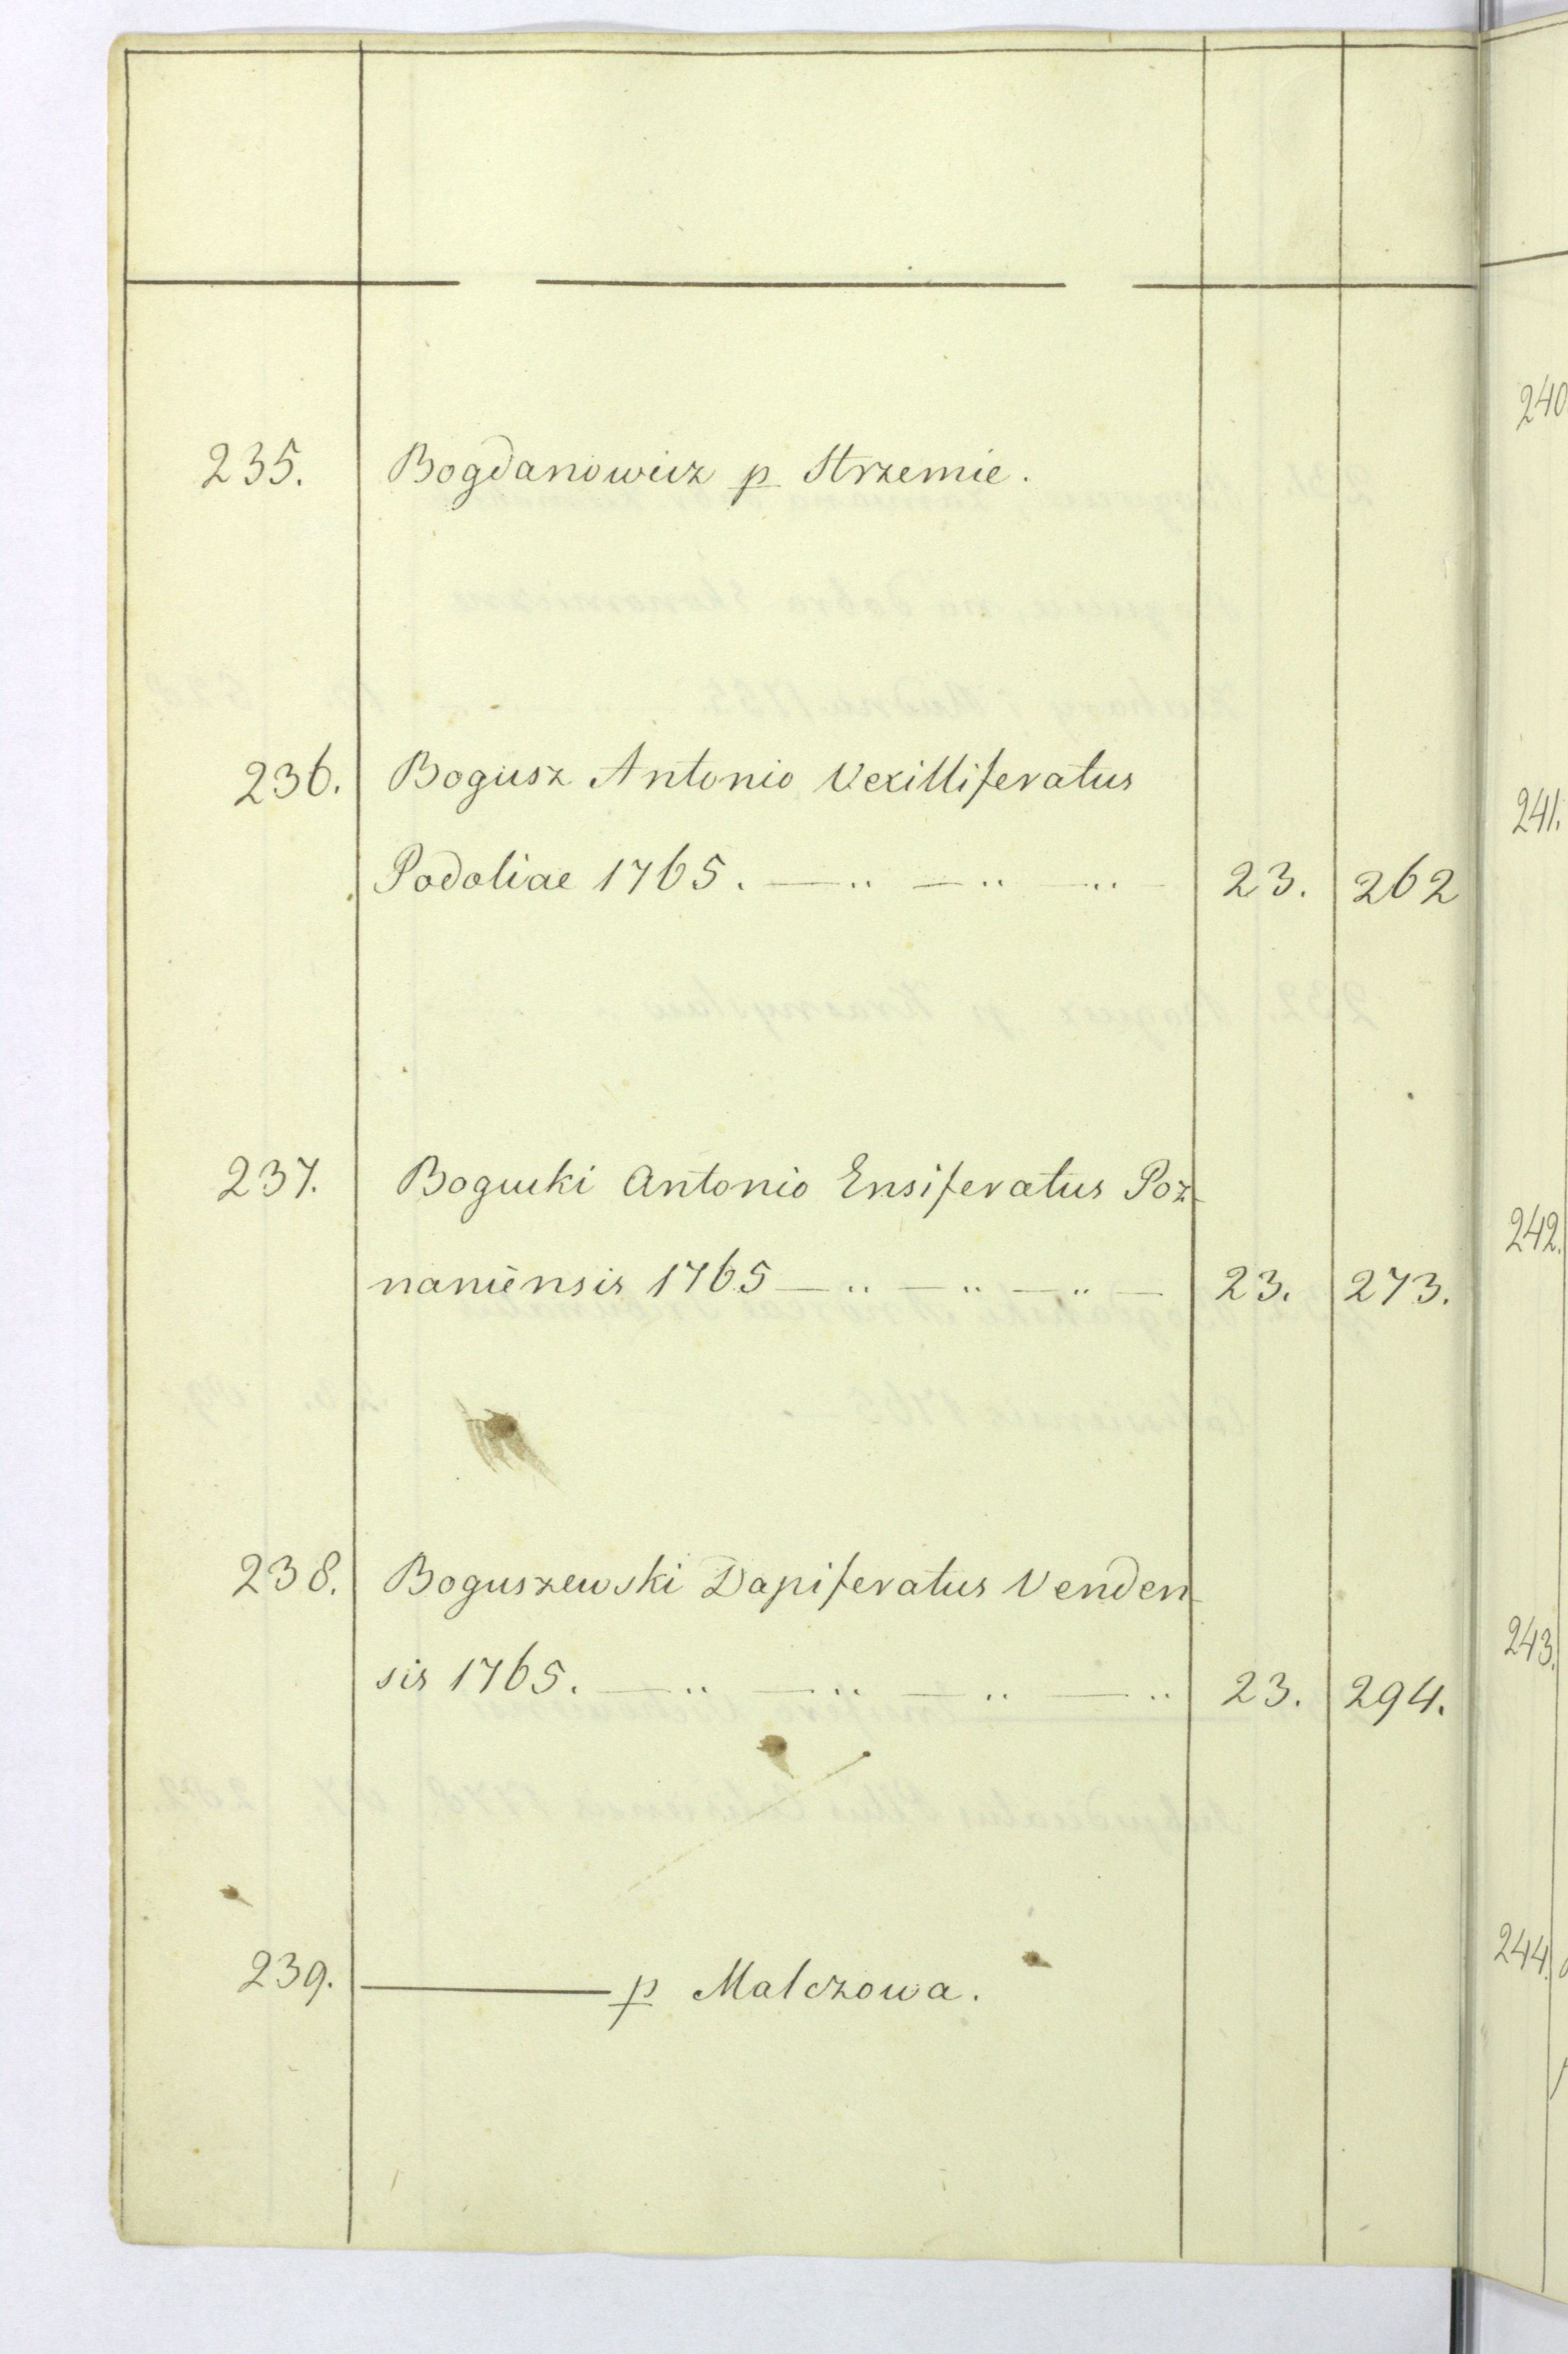 235. Bogdanowicz p Strzemie.
236. Bogusz Antonio Vexilliferatus
Podoliae 1765. — „ — „ — „ — 23. 262
237. Bogucki Antonio Ensiferatus Poz-
naniensis 1765 — „ — „ — „ — 23. 273.
238. Boguszewski Dapiferatus Venden-
sis 1765. — „ — „ — „ — „ 23. 294.
239. ——— p Malczowa.
240
241.
242.
243.
244.